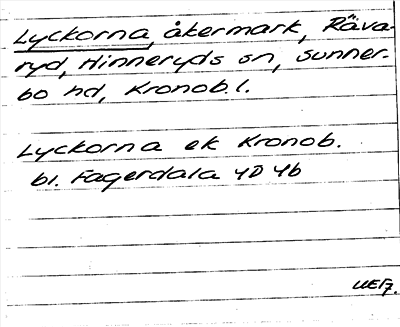 Lyckorna, åkermark, Räva-
ryd, Hinneryds sn, Sunner-
bo hd, Kronob. l.
Lyckorna ek Kronob.
bl. Fagerdala 4D 4b